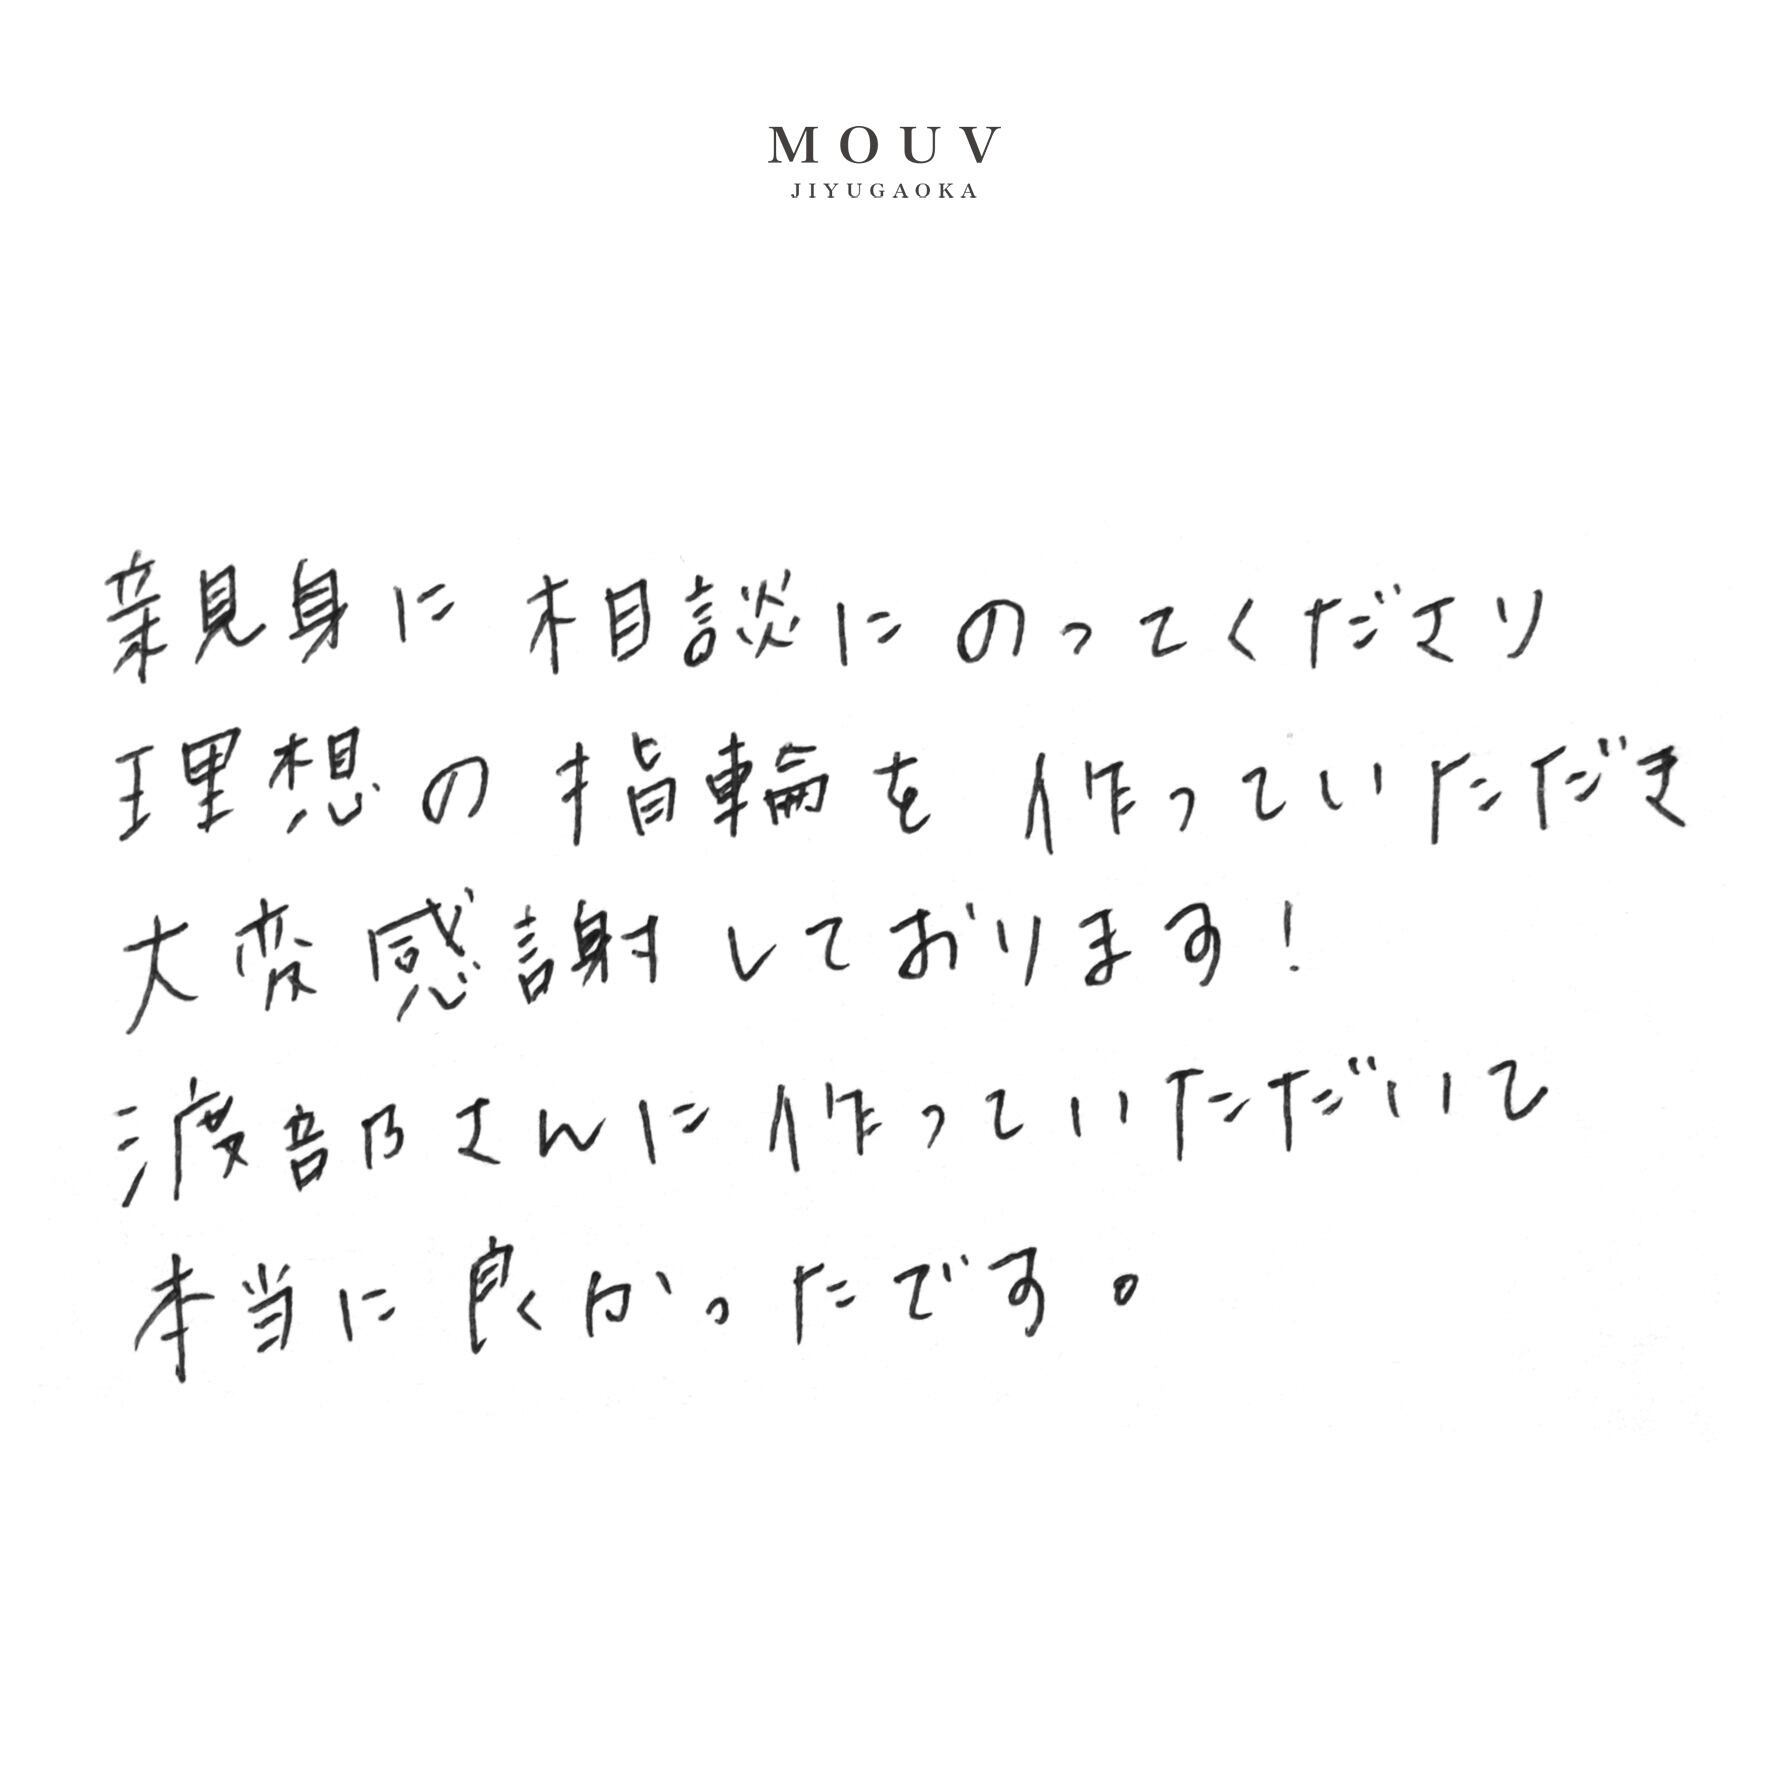 MOUV
JIYUGAOKA
親身に相談にのってくださり
理想の指輪を作っていただき
大変感謝しております!
渡部さんに作っていただいて
本当に良かったです。